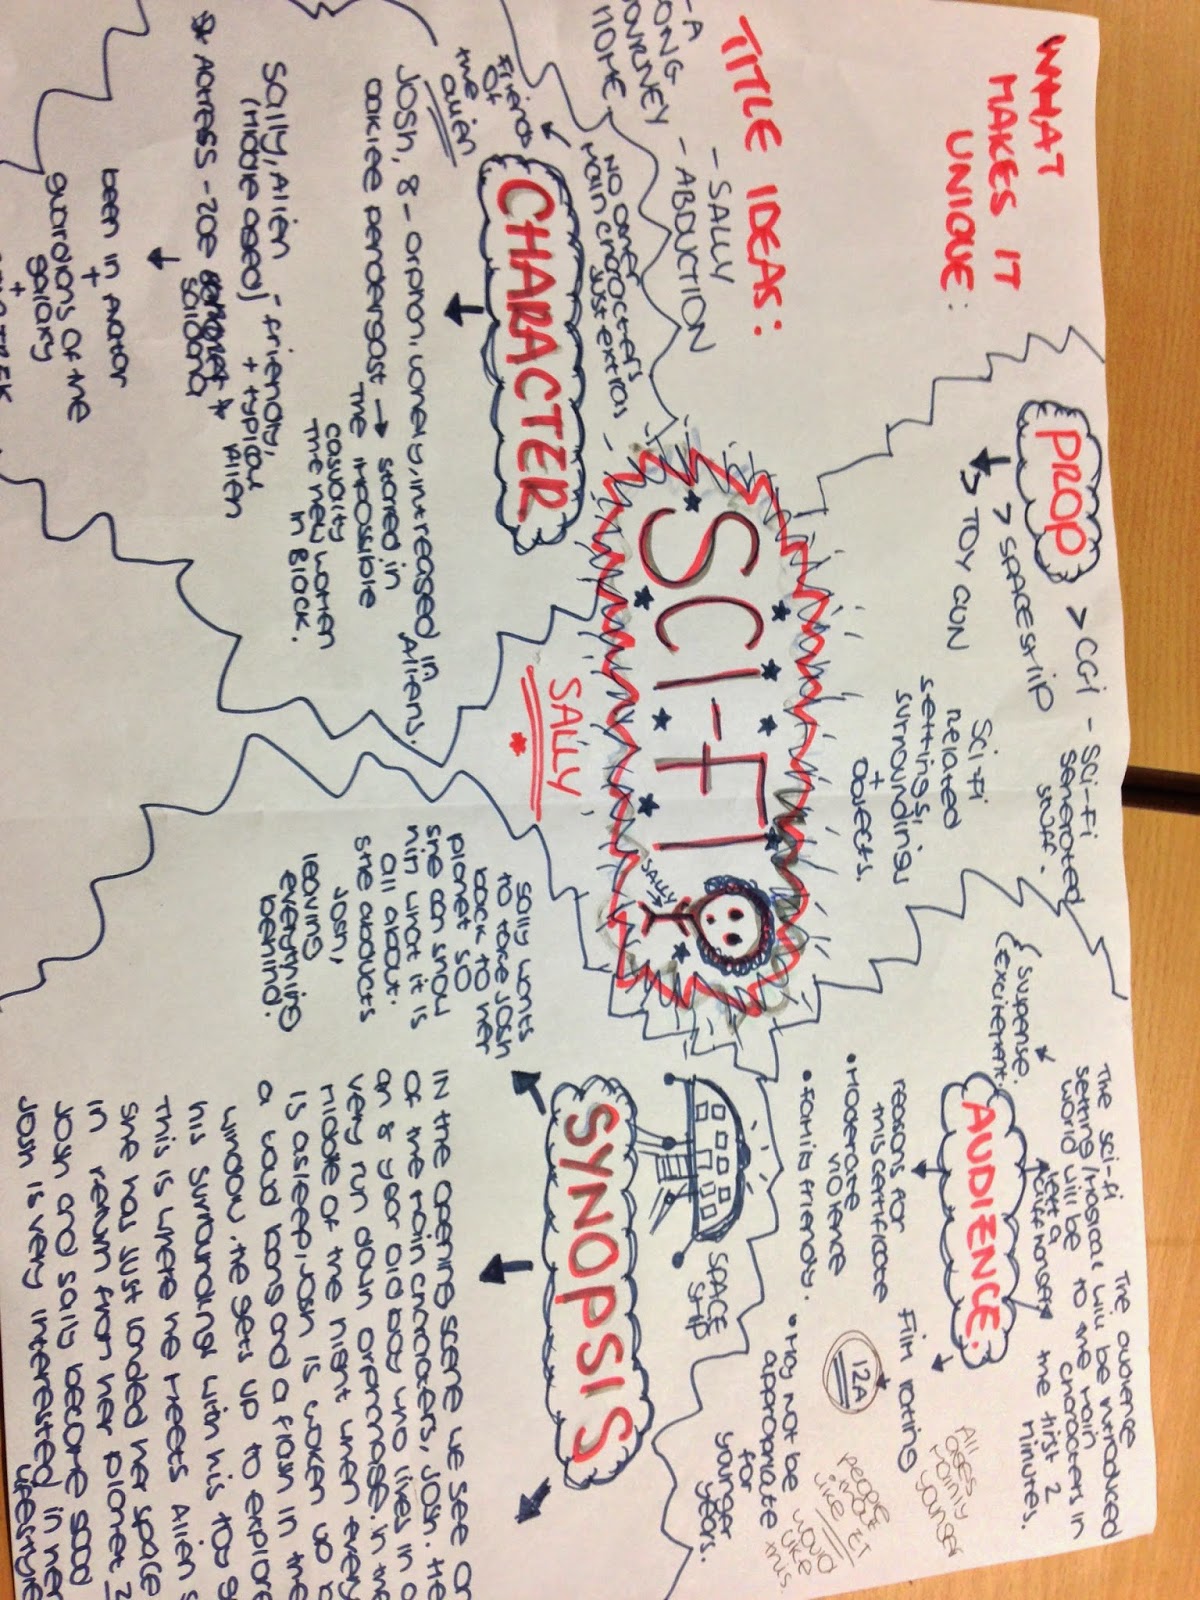 WHAT
MAKES IT
UNIQUE:
PROP
> CGI - SCI-FI
generated
stuff.
> SPACESHIP
> TOY GUN
Sci-Fi
related
settings,
surroundings
+
objects.
TITLE IDEAS:
- SALLY
- ABDUCTION
- A
JOURNEY
HOME
SCI-FI
SALLY
SALLY
CHARACTER
NO other
main characters
just extras
Friends
of
the
alien
JOSH, 8 - orphan, lonely, intreased
in
Aliens.
oaklee pendergast → stared in
The impossible
casuality
The new women
in Black.
Sally, Alien - friendly,
(middle aged) + typical
Alien
* Actress - zoe
saldana
been in Avatar
+
guardians of the
galaxy
+
AUDIENCE.
{ suspense.
{ excitement.
The sci-fi
setting/magical
world will be
left a
cliffhanger
The audience
will be introduced
to the main
characters in
the first 2
minutes.
reasons for
this certificate
• Moderate
violence
• family friendly.
• May not be
appropriate
for
younger
years.
Film rating
12A
All
ages
mainly
younger
people
that
like ET
would
like
this
SPACE
SHIP
SYNOPSIS
Sally wants
to take Josh
back to her
planet so
she can show
him what it is
all about.
she abducts
Josh,
leaving
everything
behind.
IN the opening scene we see
of the main characters, Josh. the
an 8 year old boy who lives in a
very run down orphanage. in the
middle of the night when every
is asleep, Josh is woken up
a loud bang and a flash in the
window. he gets up to explore
his surroundings with his toy
This is where he meets Alien
she has just landed her space
in return from her planet
Josh and Sally become good
Josh is very interested in her
lifestyle